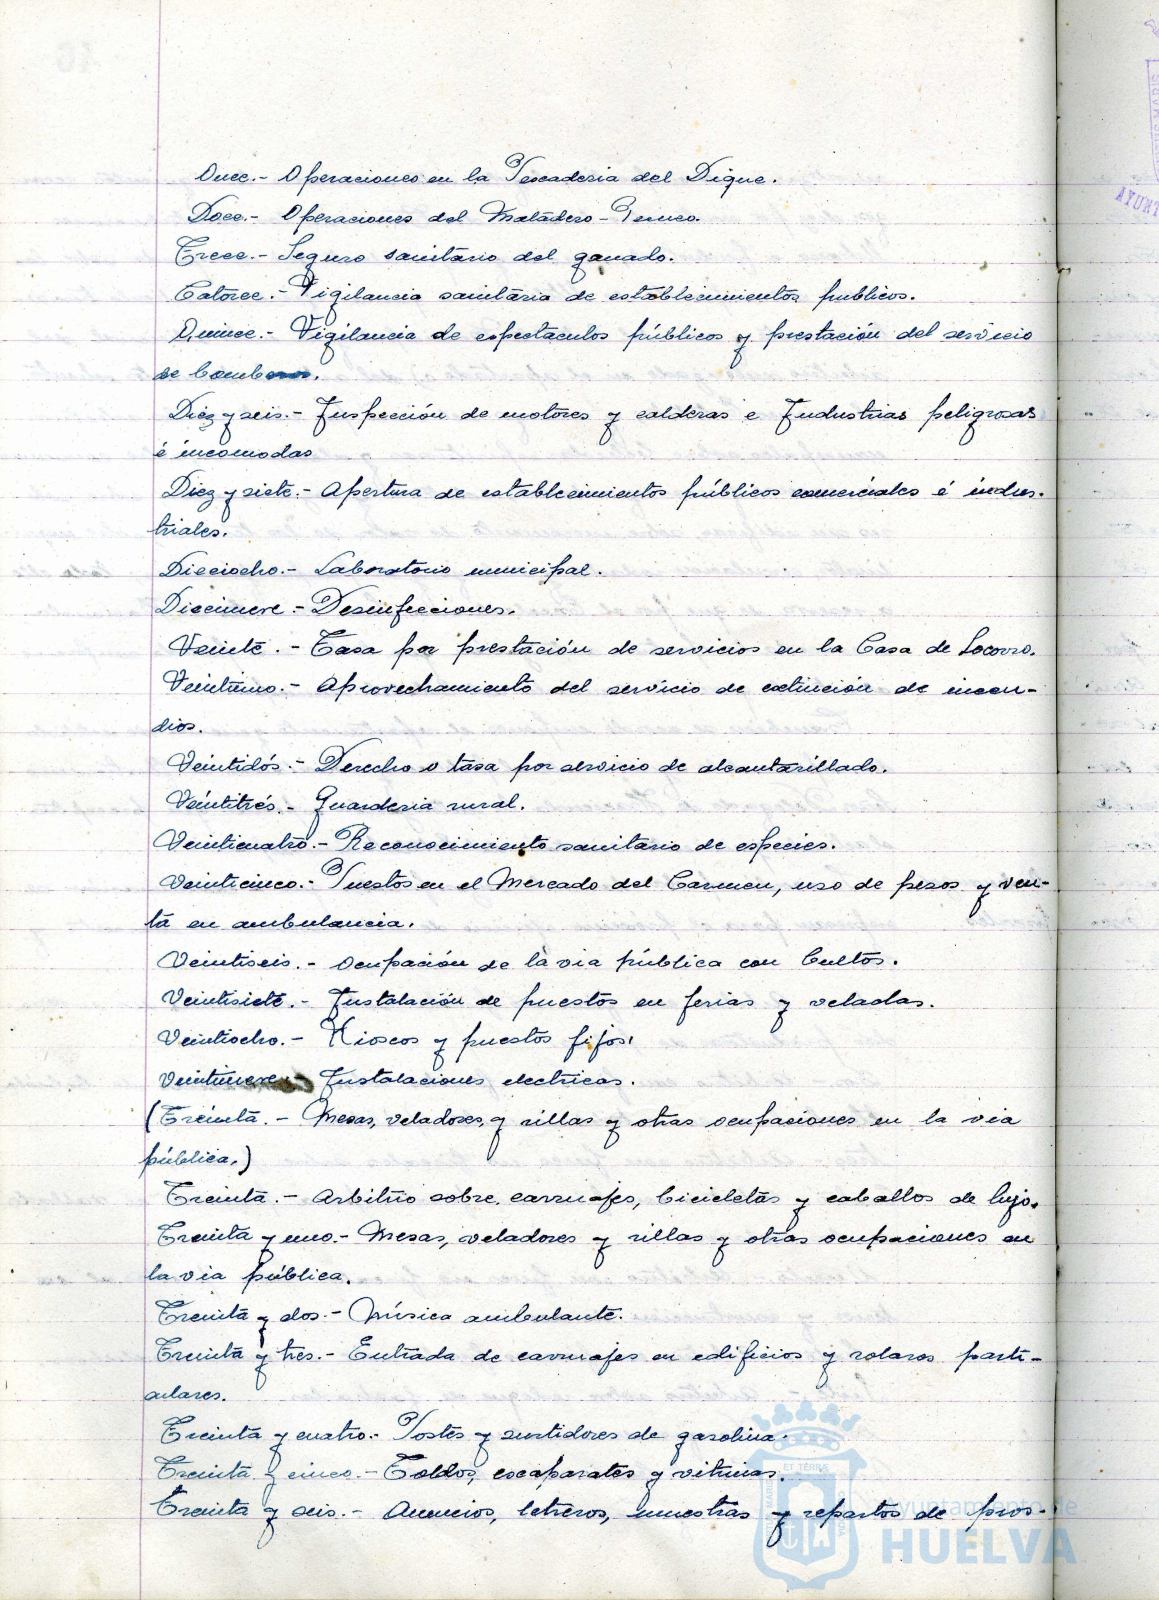 Once.- Operaciones en la Pescaderia del Dique.
Doce.- Operaciones del Matadero-
Trece.- Seguro sanitário del ganado.
Catorce.- Vigilancia sanitaria de establecimientos publicos.
Quince.- Vigilancia de espectaculos públicos y prestación del servicio
de bomberos.
Diez y seis.- Inspección de motores y calderas e Industrias peligrosas
é incomodas
Diez y siete.- Apertura de establecimientos públicos comerciales é indus-
triales.
Dieciocho.- Laboratorio municipal.
Diecinueve.- Desinfecciones.
Veinte.- Tasa por prestación de servicios en la Casa de Socorro.
Veintiuno.- Aprovechamiento del servicio de extinción de incen-
dios.
Veintidós.- Derecho o tasa por servicio de alcantarillado.
Veintitrés.- Guarderia rural.
Veinticuatro.- Reconocimiento sanitario de especies.
Veinticinco.- Puestos en el Mercado del Carmen, uso de pesos y ven-
ta en ambulancia.
Veintiseis.- Ocupación de la via pública con bultos.
Veintisiete.- Instalación de puestos en ferias y veladas.
Veintiocho.- Kioscos y puestos fijos.
Veintinueve.- Instalaciones electricas.
(Treinta.- Mesas, veladores, y sillas y otras ocupaciones en la via
pública.)
Treinta.- Arbitrio sobre carruajes, bicicletas y caballos de lujo.
Treinta y uno.- Mesas, veladores y sillas y otras ocupaciones en
la via pública.
Treinta y dos.- Música ambulante.
Treinta y tres.- Entrada de carruajes en edificios y solares parti-
culares.
Treinta y cuatro.- Postes y surtidores de gasolina.
Treinta y cinco.- Toldos, escaparates y vitrinas.
Treinta y seis.- Anuncios, letreros, muestras y repartos de pros-
Ayuntamiento de
HUELVA